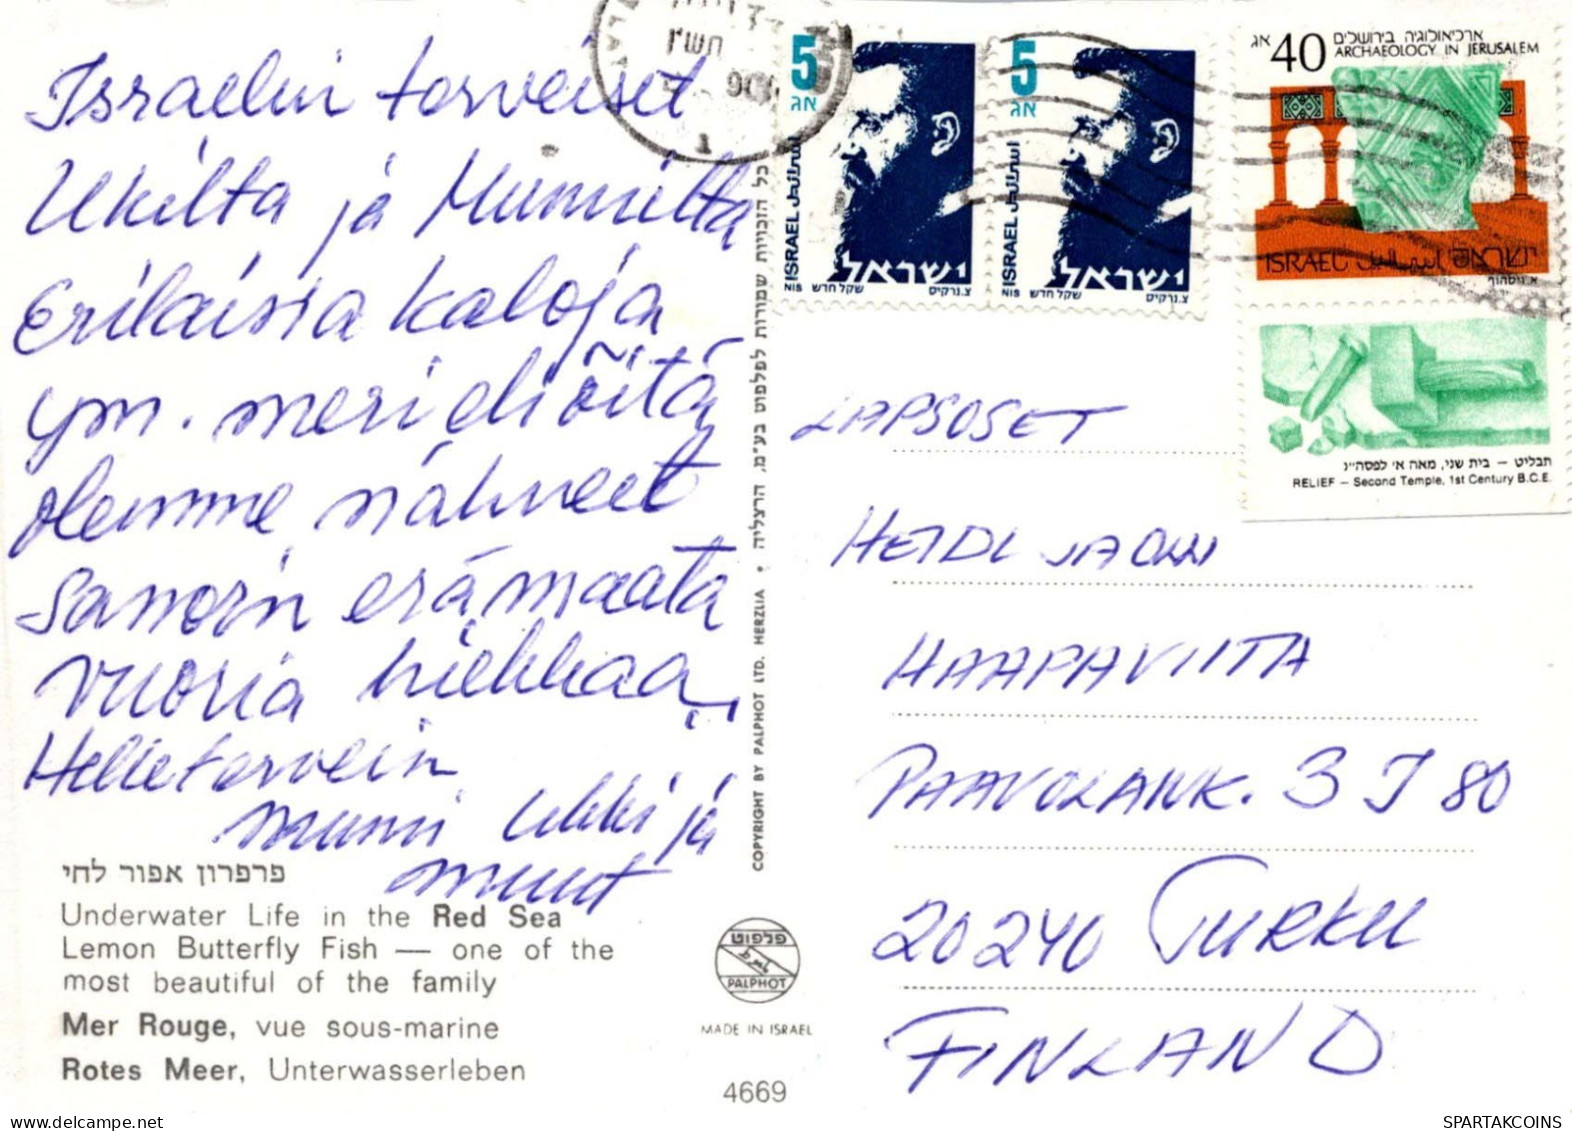 Israelin terveiset
Ukilta ja Mummilta
Erilaisia kaloja
ym. meri eliöitä
olemme nähneet
sanoin erämaata
vuoria hiekkaa,
Helletervein
mummi Ukki ja
muut
פרפרון אפור לחי
Underwater Life in the Red Sea
Lemon Butterfly Fish — one of the
most beautiful of the family
Mer Rouge, vue sous-marine
Rotes Meer, Unterwasserleben
כל הזכויות שמורות לפלפוט בע"מ, הרצליה • COPYRIGHT BY PALPHOT LTD. HERZLIA
פלפוט
PALPHOT
MADE IN ISRAEL
4669
תש"ן
5 אג
ISRAEL اسرائيل
ישראל
NIS שקל חדש צ.נרקיס
5 אג
ISRAEL اسرائيل
ישראל
NIS שקל חדש צ.נרקיס
40 אג
ארכיאולוגיה בירושלים
ARCHAEOLOGY IN JERUSALEM
ISRAEL اسرائيل ישראל
תבליט – בית שני, מאה א' לפסה"נ
RELIEF – Second Temple, 1st Century B.C.E.
LAPSOSET
HEIDI
HAAPAVIITA
PAAVOLANK. 3 J 80
20240 TURKU
FINLAND
SPARTAKCOINS